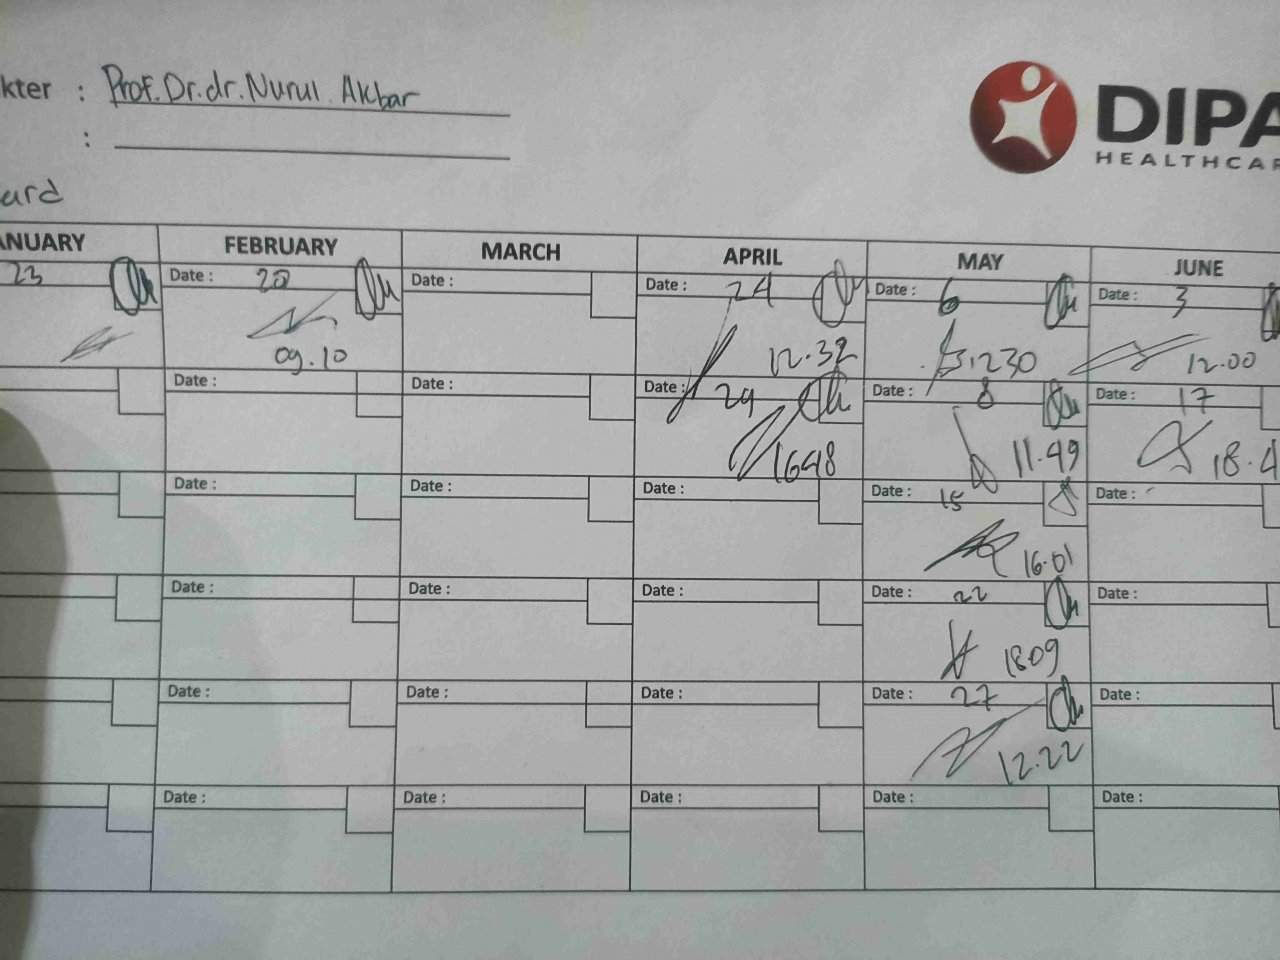 kter : Prof. Dr. dr. Nurul Akbar
:
DIPA
HEALTHCAR
ard
ANUARY FEBRUARY MARCH APRIL MAY JUNE
23 Date : 20 Date : Date : 24 Date : 6 Date : 3
09.10 12.32 1230 12.00
Date : Date : Date : 29 Date : 8 Date : 17
1648 11.49 18.4
Date : Date : Date : Date : 15 Date :
16.01
Date : Date : Date : Date : 22 Date :
1809
Date : Date : Date : Date : 27 Date :
12.22
Date : Date : Date : Date : Date :